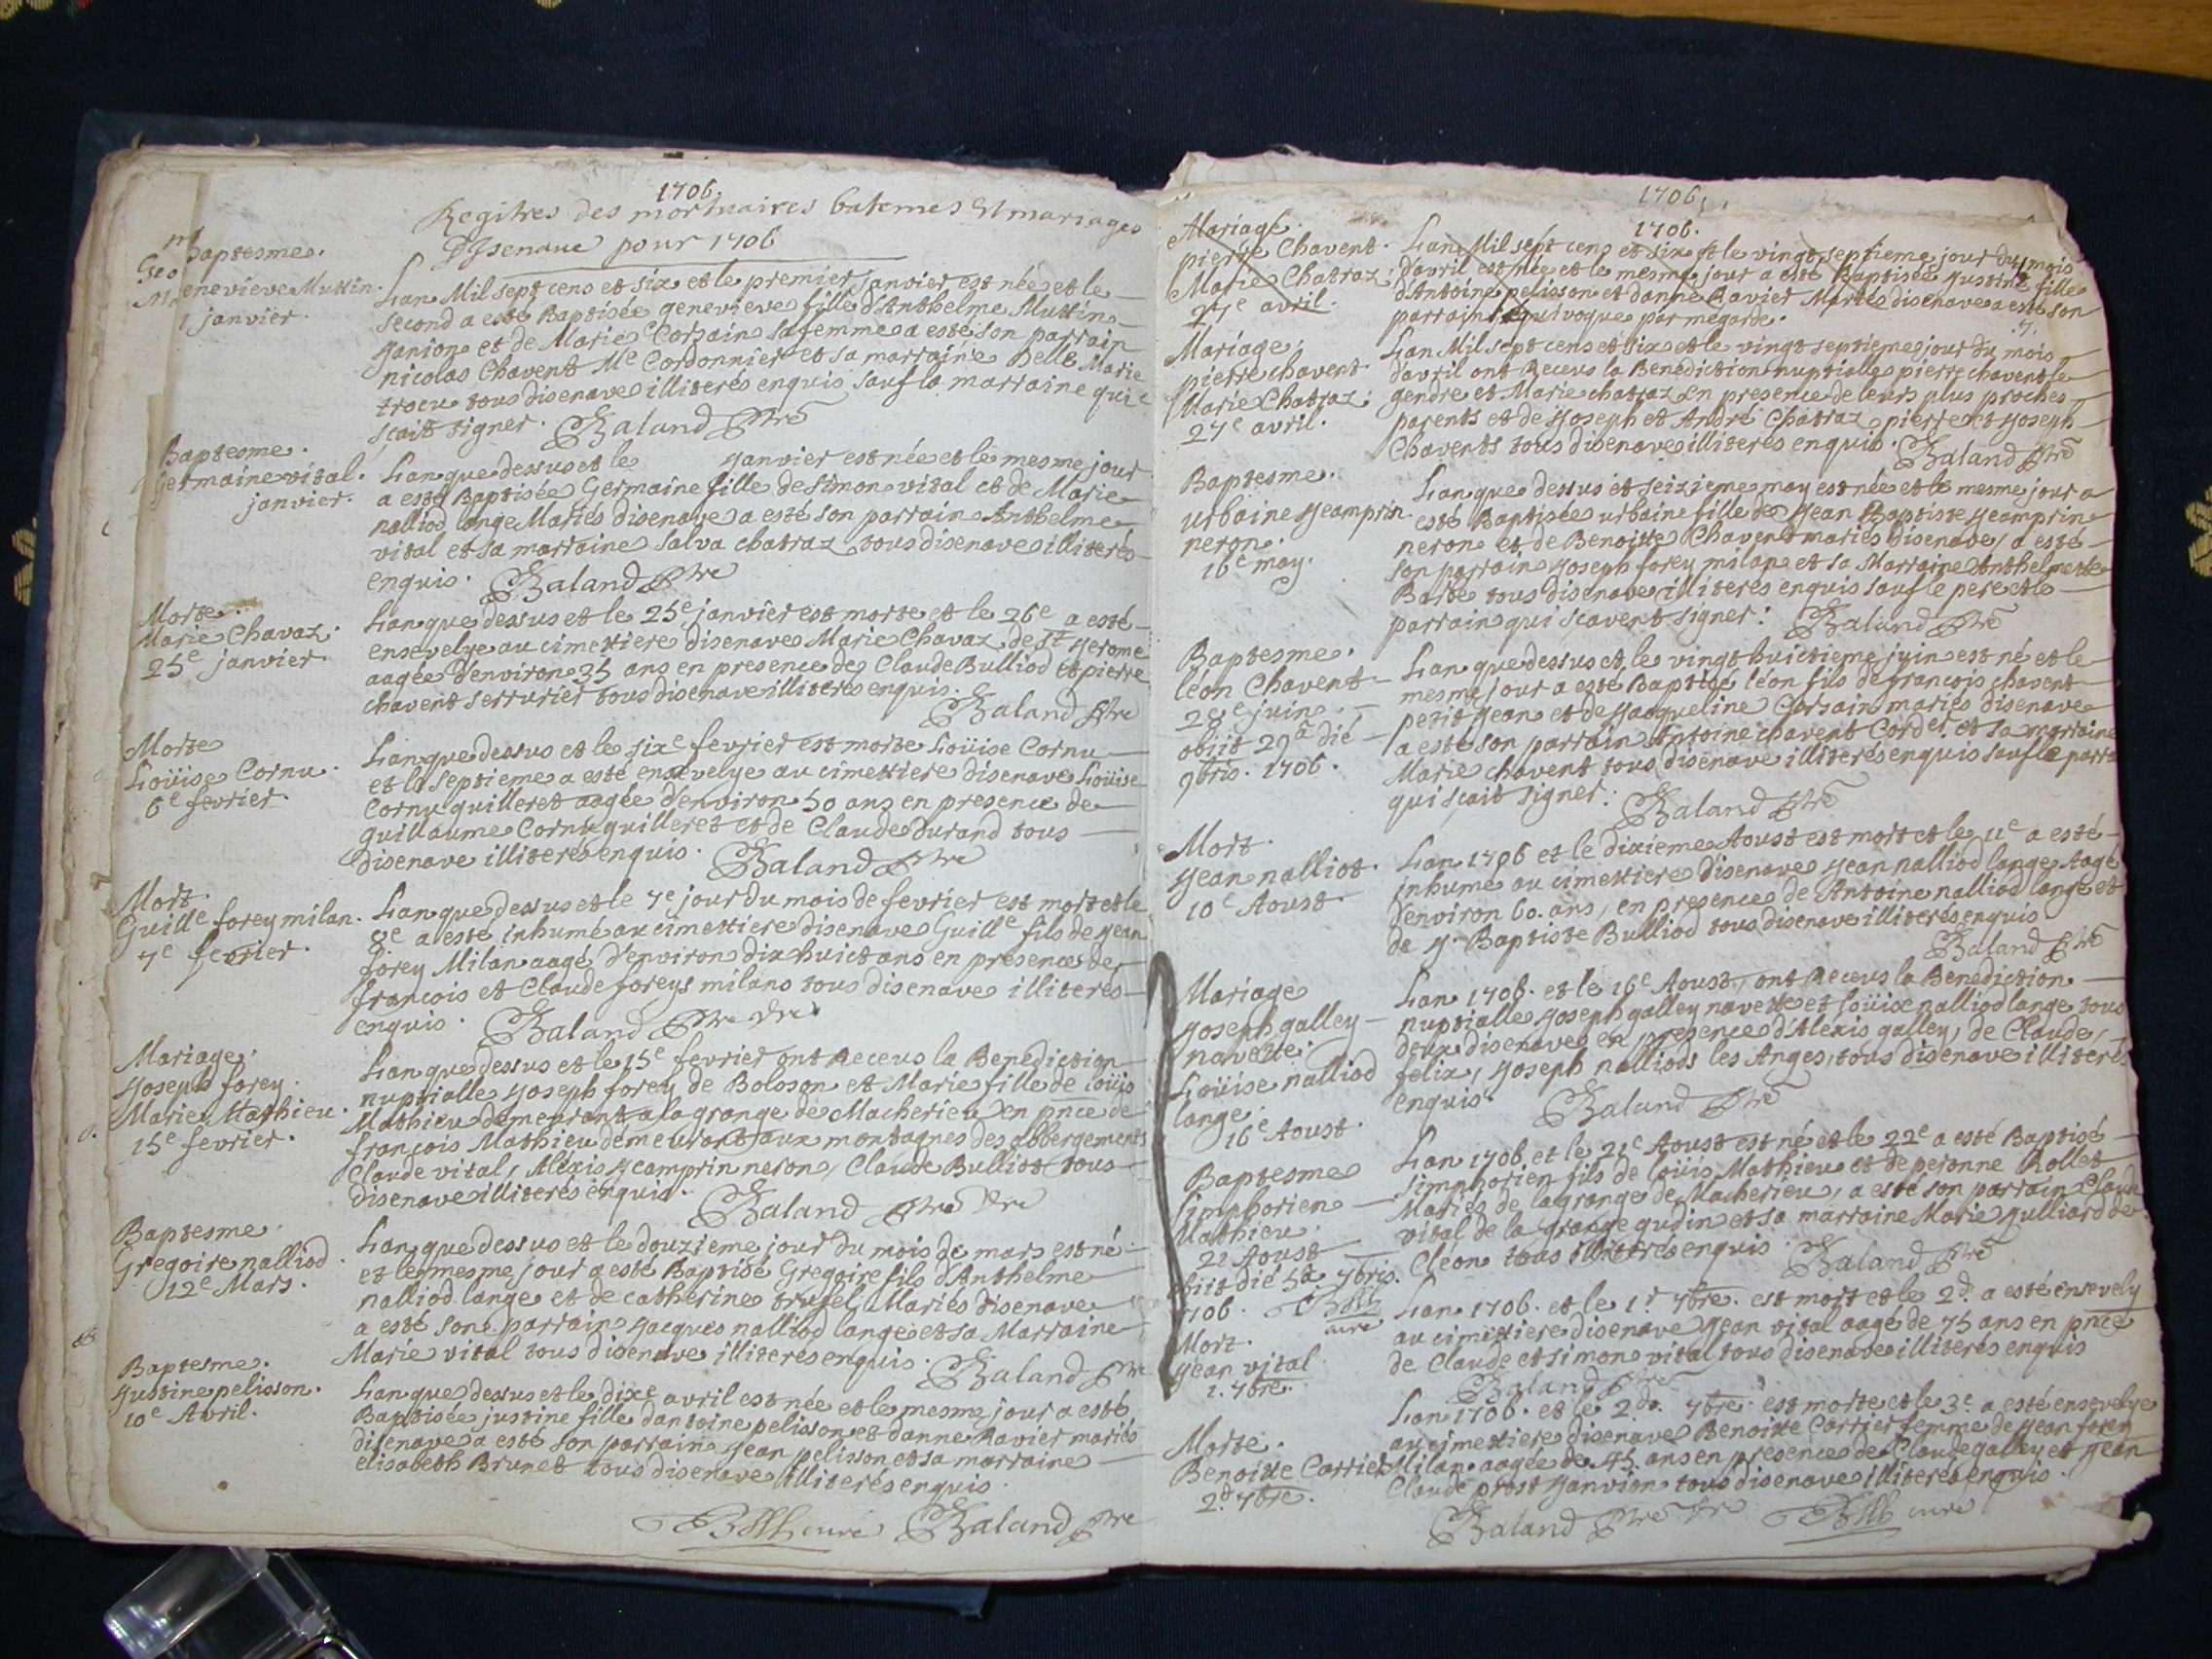 1706.
Regitres des mortuaires batemes Et mariages
D'Isenave pour 1706
Baptesme.
Genevieve Muttin.
1 janvier.
Lan Mil sept cens et six et le premier janvier est née et le
second a esté Baptisée genevieve fille d'Anthelme Muttin
yanion et de Marie Corsain sa femme a esté son parrain
nicolas Chavent Me Cordonnier et sa marraine Delle Marie
trocu tous disenave illiterés enquis sauf la marraine qui
sçait signer. Baland Ptre
Baptesme.
Germaine vital.
janvier.
Lan que dessus et le yanvier est née et le mesme jour
a esté Baptisée Germaine fille de simon vital et de Marie
nalliod lange Mariés disenave a esté son parrain Anthelme
vital et sa marraine salva chatraz tous disenave illiterés
enquis. Baland Ptre
Morte.
Marie Chavaz.
25e janvier.
Lan que dessus et le 25e janvier est morte et le 26e a esté
ensevelye au cimettiere disenave Marie Chavaz de St yerome
aagée d'environ 35 ans en presence de Claude Bulliod et pierre
chavent serrurier tous disenave illiterés enquis.
Baland Ptre
Morte
Loüise Cornu.
6e fevrier.
Lan que dessus et le sixe fevrier est morte Loüise Cornu
et le septieme a esté ensevelye au cimettiere disenave Loüise
Cornu quilleret aagée d'environ 50 ans en presence de
guillaume Cornu quilleret et de Claude durand tous
disenave illiterés enquis. Baland Ptre
Mort.
Guille forey milan.
7e fevrier.
Lan que dessus et le 7e jour du mois de fevrier est mort et le
8e a esté inhumé au cimettiere disenave Guille fils de yean
forey Milan aagé d'environ dix huict ans en presence de
francois et Claude foreys milans tous disenave illiterés
enquis. Baland Ptre Vre
Mariage.
yoseph forey.
Marie Mathieu.
15e fevrier.
Lan que dessus et le 15e fevrier ont Receus la Benediction
nuptialle yoseph forey de Boloson et Marie fille de Loüis
Mathieu demeurant a la grange de Macherieu en pnce de
françois Mathieu demeurant aux montagnes des abbergements
Claude vital, Alexis yeamprin neron, Claude Bulliot tous
disenave illiterés enquis. Baland Ptre Vre
Baptesme.
Gregoire nalliod.
12e Mars.
Lan que dessus et le douzieme jour du mois de mars est né
et le mesme jour a esté Baptisé Gregoire fils d'Anthelme
nalliod lange et de catherine trufel Mariés disenave
a esté son parrain yacques nalliod lange et sa Marraine
Marie vital tous disenave illiterés enquis. Baland Ptre
Baptesme.
yustine pelisson.
10e Avril.
Lan que dessus et le dixe avril est née et le mesme jour a esté
Baptisée justine fille dantoine pelisson et danne Ravier mariés
disenave a esté son parrain yean pelisson et sa marraine
elisabeth Brunet tous disenave illiterés enquis.
curé Baland Ptre
1706.
1706.
Mariage.
pierre Chavent.
Marie Chatraz.
27e avril.
Lan Mil sept cens et six et le vingt septieme jour du mois
d'avril est née et le mesme jour a esté Baptisée yustine fille
d'Antoine pelisson et danne Ravier Mariés disenave a esté son
parrain equivoque par megarde.
Mariage.
pierre chavent
Marie Chatraz.
27e avril.
Lan Mil sept cens et six et le vingt septieme jour du mois
d'avril ont Receus la Benediction nuptialle pierre chavent le
gendre et Marie chatraz en presence de leurs plus proches
parents et de yoseph et André Chatraz pierre et yoseph
Chavents tous disenave illiterés enquis. Baland Ptre
Baptesme.
urbaine yeamprin
neron.
16e may.
Lan que dessus et seizieme may est née et le mesme jour a
esté Baptisée urbaine fille de yean Baptiste yeamprin
neron et de Benoitte Chavent mariés disenave, a esté
son parrain yoseph forey milan et sa Marraine Anthelmette
Barbe tous disenave illiterés enquis sauf le pere et le
parrain qui sçavent signer. Baland Ptre
Baptesme.
léon Chavent
28e juin.
obiit 29a die
9bris. 1706.
Lan que dessus et le vingt huictieme juin est né et le
mesme jour a esté Baptisé léon fils de francois chavent
petit yean et de yacqueline Corsain mariés disenave
a esté son parrain Antoine chavent Corder et sa marraine
Marie chavent tous disenave illiterés enquis sauf le parra
qui sçait signer. Baland Ptre
Mort.
yean nalliot.
10e Aoust.
Lan 1706 et le dixieme Aoust est mort et le 11e a esté
inhumé au cimettiere disenave yean nalliod lange Aagé
d'environ 60. ans, en presence de Antoine nalliod lange et
de y. Baptiste Bulliod tous disenave illiterés enquis
Baland Ptre
Mariage
yoseph galley
navette.
Loüise nalliod
lange.
16e Aoust.
Lan 1706. et le 16e Aoust, ont Receus la Benediction
nuptialle yoseph galley navette et Loüise nalliod lange tous
deux disenave en presence d'Alexis galley, de Claude,
felix, yoseph nalliods les Anges, tous disenave illiterés
enquis. Baland Ptre
Baptesme
simphorien
Mathieu.
21 Aoust
obiit die 5a 7bris.
1706.
curé
Lan 1706 et le 21e Aoust est né et le 22e a esté Baptisé
simphorien fils de Loüis Mathieu et de peronne Rollet
Mariés de lagrange de Macherieu, a esté son parrain Claude
vital de la grange gudin et sa marraine Marie yulliard de
Cléon tous illiterés enquis. Baland Ptre
Mort.
yean vital
1. 7bre.
Lan 1706. et le 1r 7bre. est mort et le 2d. a esté ensevely
au cimettiere disenave yean vital aagé de 75 ans en pnce
de Claude et simon vital tous disenave illiterés enquis
Baland Ptre
Morte.
Benoitte Carrier
2d 7bre.
Lan 1706. et le 2d. 7bre. est morte et le 3e. a esté ensevelye
au cimettiere disenave Benoitte Carrier femme de yean forey
Milan aagée de 45 ans en presence de Claude galley et yean
Claude prost yanvion tous disenave illiterés enquis.
Baland Ptre Vre curé